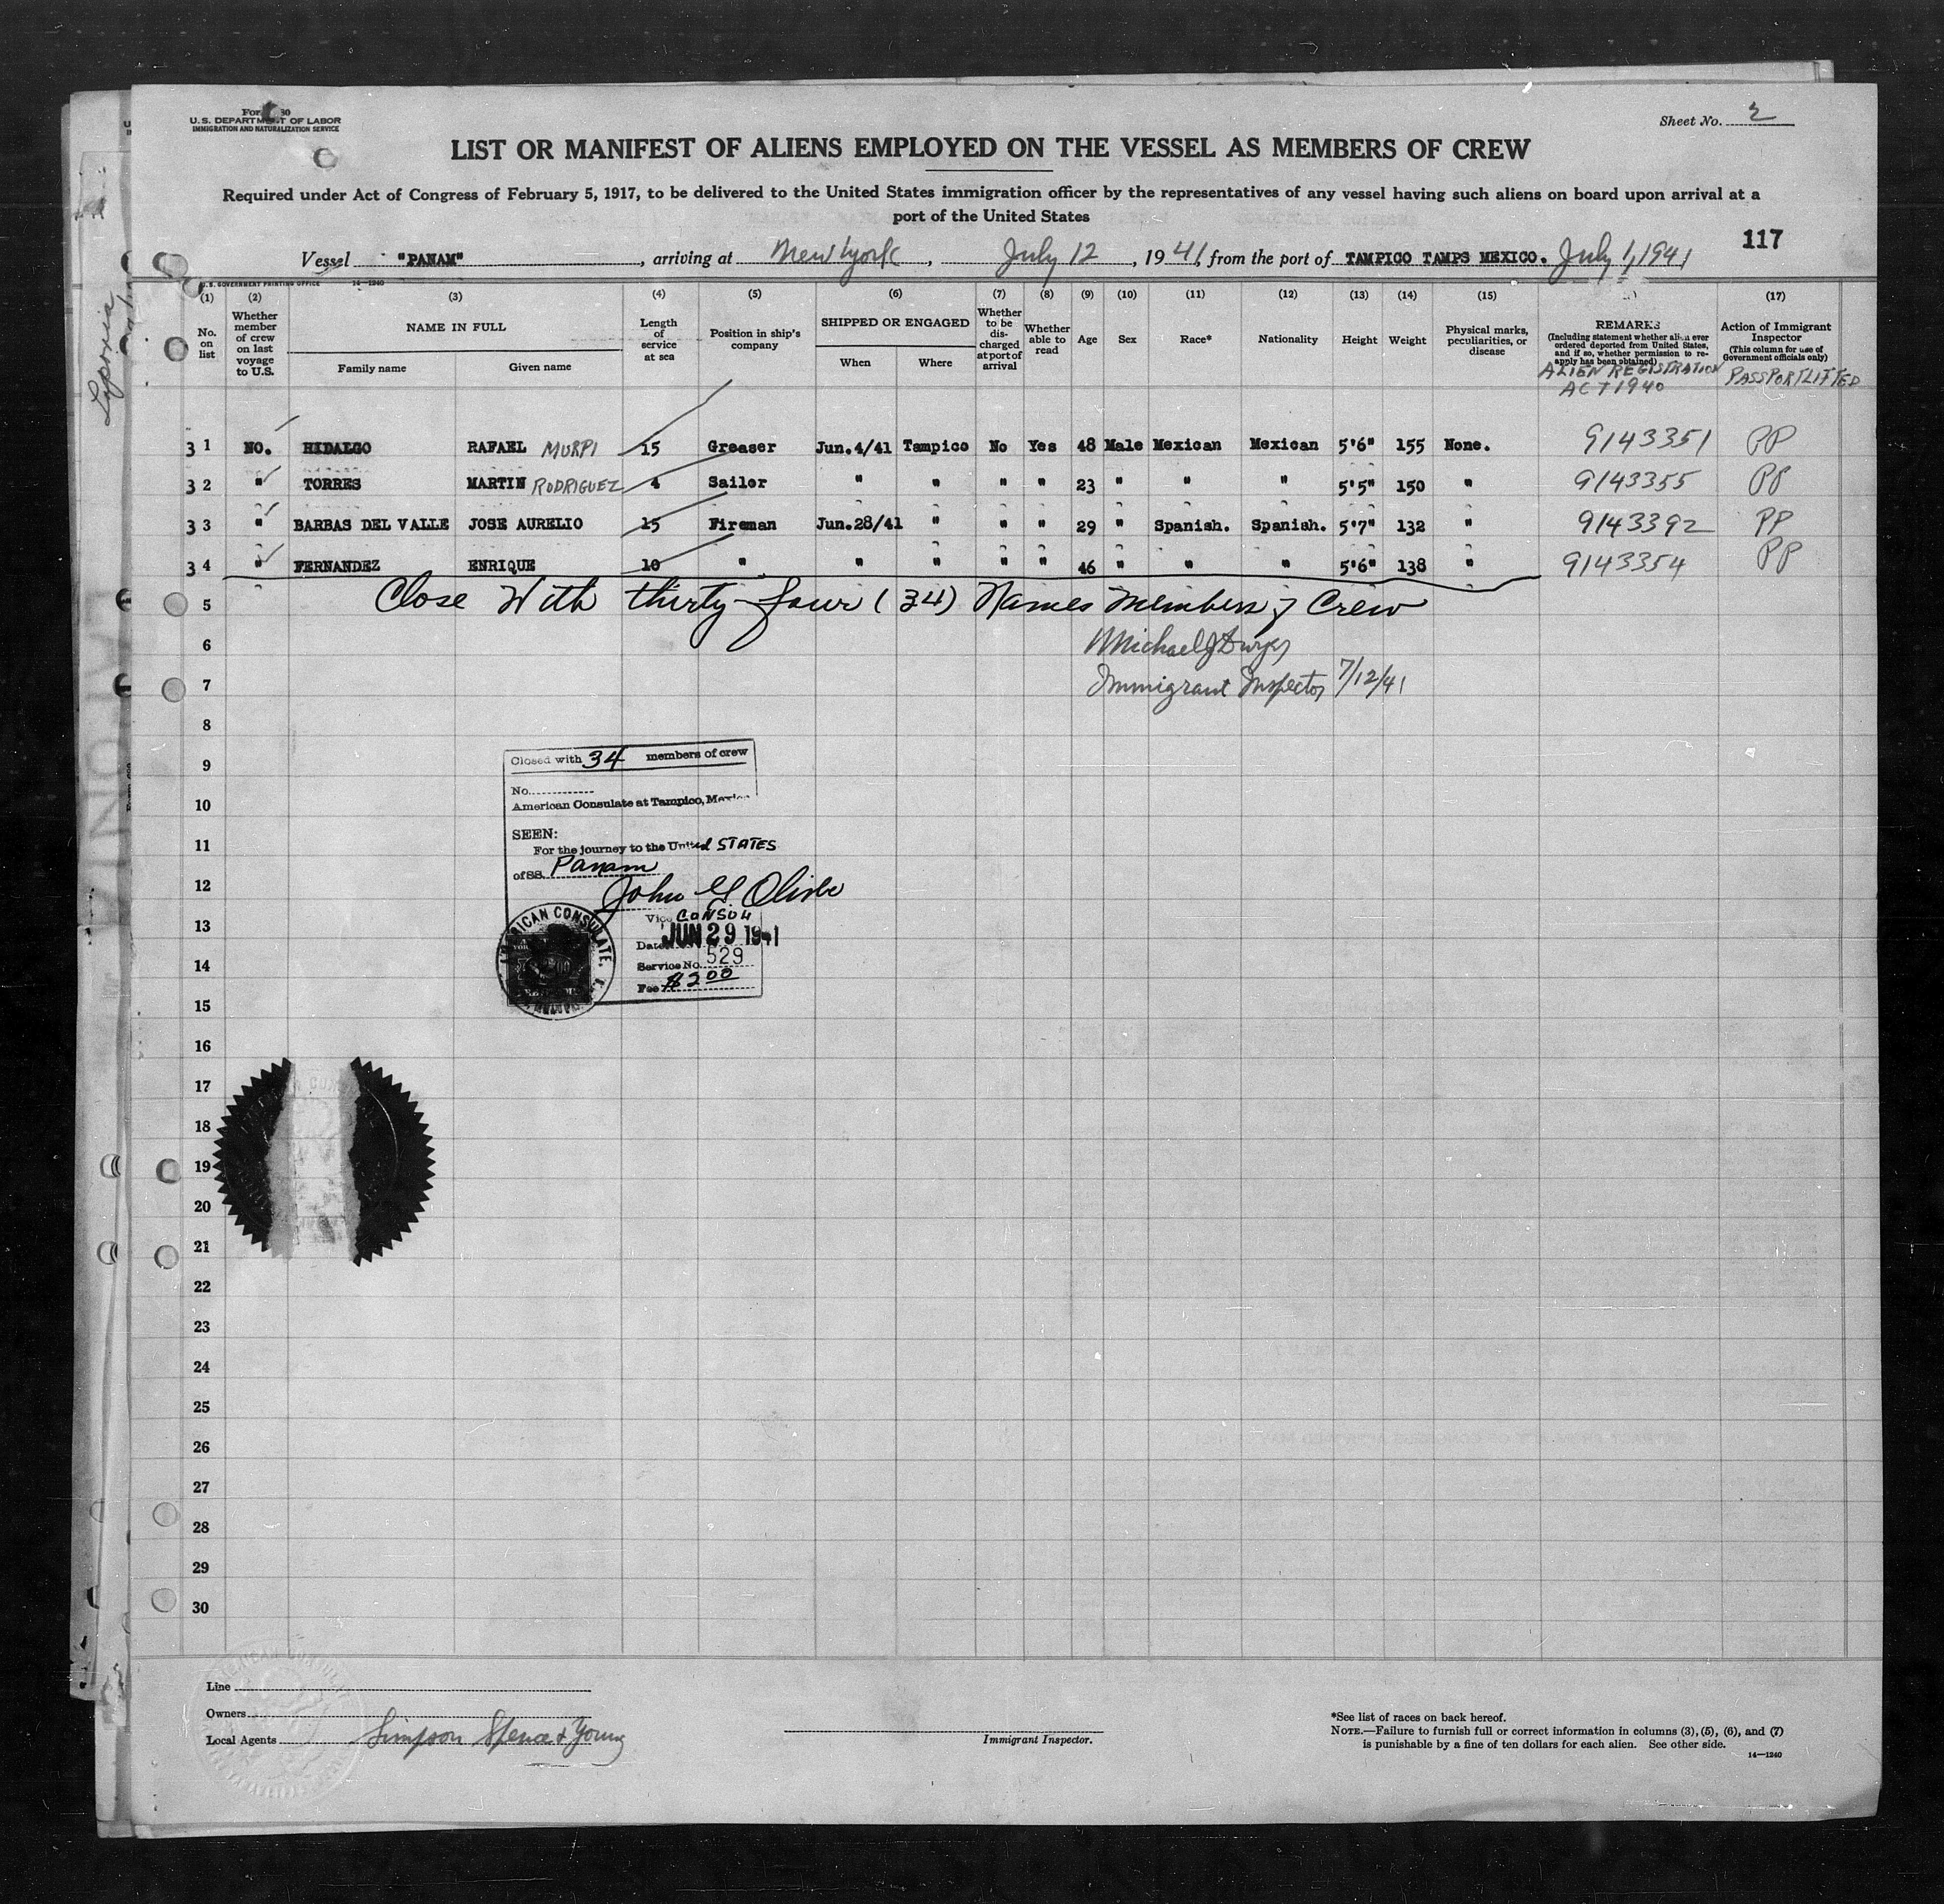 U.S. DEPARTMENT OF LABOR
IMMIGRATION AND NATURALIZATION SERVICE
Sheet No. 2
LIST OR MANIFEST OF ALIENS EMPLOYED ON THE VESSEL AS MEMBERS OF CREW
Required under Act of Congress of February 5, 1917, to be delivered to the United States immigration officer by the representatives of any vessel having such aliens on board upon arrival at a
port of the United States
117
Vessel "PANAM", arriving at New York, July 12, 1941, from the port of TAMPICO TAMPS MEXICO. July 1, 1941
U.S. GOVERNMENT PRINTING OFFICE 14—1240
(1) (2) (3) (4) (5) (6) (7) (8) (9) (10) (11) (12) (13) (14) (15) (17)
No. on list
Whether member of crew on last voyage to U.S.
NAME IN FULL
Family name Given name
Length of service at sea
Position in ship's company
SHIPPED OR ENGAGED
When Where
Whether to be discharged at port of arrival
Whether able to read
Age Sex Race* Nationality Height Weight
Physical marks, peculiarities, or disease
REMARKS
(Including statement whether alien ever ordered deported from United States, and if so, whether permission to reapply has been obtained)
ALIEN REGISTRATION
ACT 1940
Action of Immigrant Inspector
(This column for use of Government officials only)
PASSPORT LIFTED
3 1 NO. HIDALGO RAFAEL MURPI 15 Greaser Jun.4/41 Tampico No Yes 48 Male Mexican Mexican 5'6" 155 None. 9143351 PP
3 2 " TORRES MARTIN RODRIGUEZ 4 Sailor " " " " 23 " " " 5'5" 150 " 9143355 PP
3 3 " BARBAS DEL VALLE JOSE AURELIO 15 Fireman Jun.28/41 " " " 29 " Spanish. Spanish. 5'7" 132 " 9143392 PP
3 4 " FERNANDEZ ENRIQUE 10 " " " " " 46 " " " 5'6" 138 " 9143354 PP
5 Close With thirty-four (34) Names Members of Crew
6 Michael J
7 Immigrant Inspector 7/12/41
8
9
10
11
12
13
14
15
16
17
18
19
20
21
22
23
24
25
26
27
28
29
30
Closed with 34 members of crew
No.
American Consulate at Tampico, Mexico
SEEN:
For the journey to the United STATES
of SS. Panam
John G
Vice CONSUL
Date JUN 29 1941
Service No. 529
Fee $2.00
AMERICAN CONSULATE
Line
Owners
Local Agents Simpson Spence & Young
Immigrant Inspector.
*See list of races on back hereof.
NOTE.—Failure to furnish full or correct information in columns (3), (5), (6), and (7)
is punishable by a fine of ten dollars for each alien. See other side.
14—1240